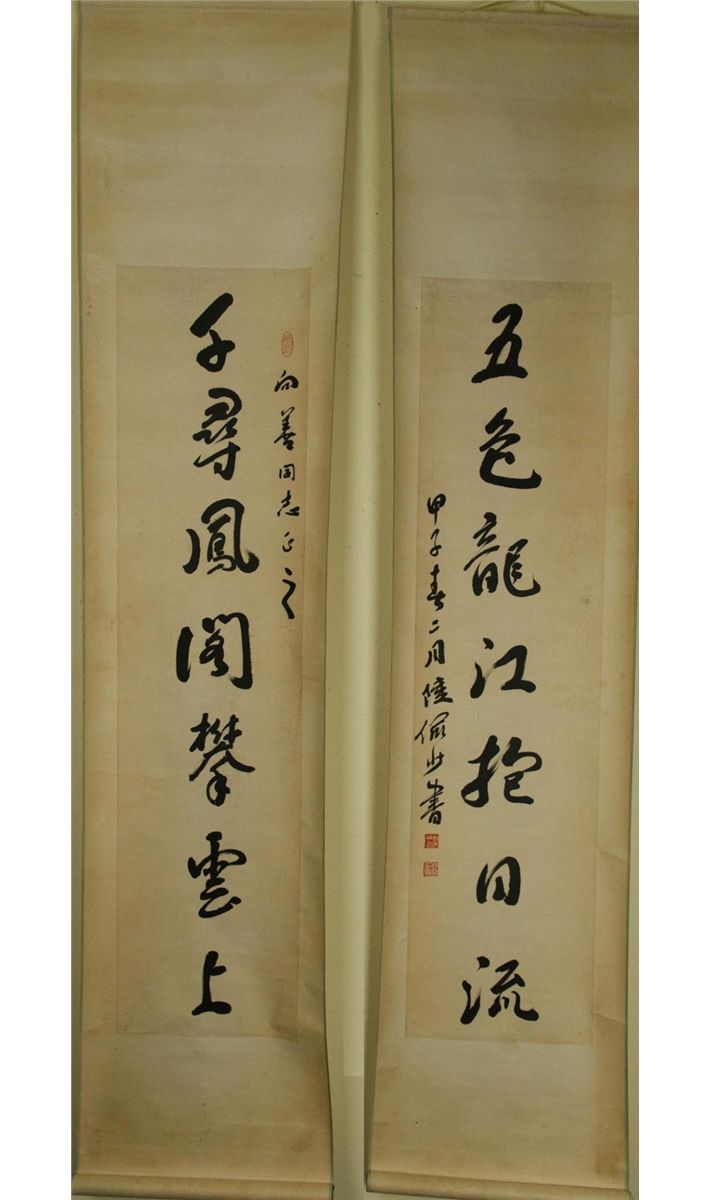 千尋鳳閣攀雲上
向善同志正之
五色龍江抱日流
甲子春二月陸儼少書